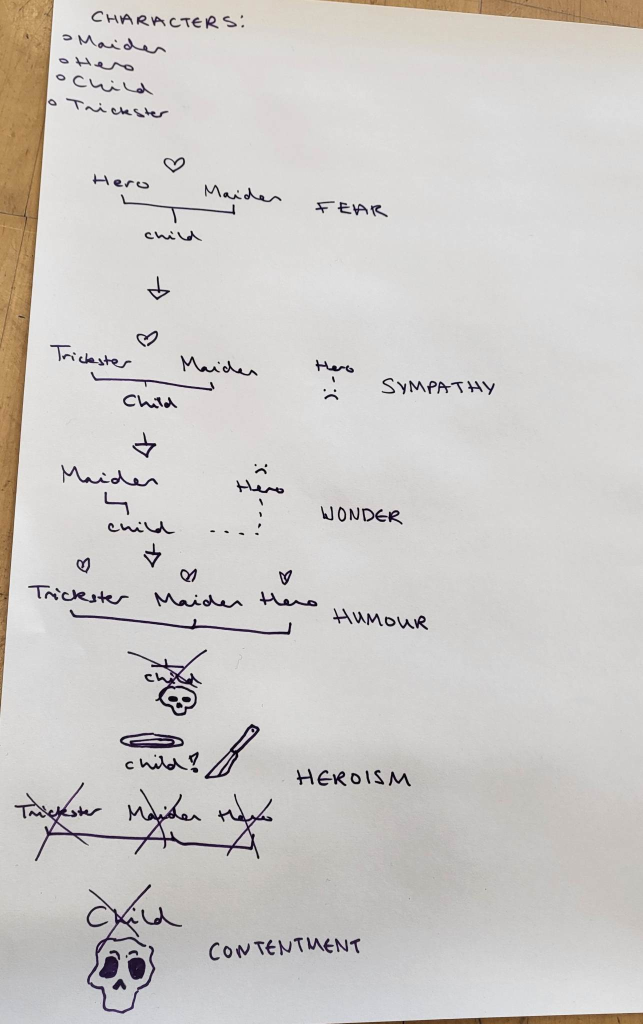 CHARACTERS:
Maiden
Hero
Child
Trickster
Hero Maiden FEAR
child
Trickster Maiden Hero SYMPATHY
Child
Maiden Hero
child WONDER
Trickster Maiden Hero HUMOUR
child
child! HEROISM
Trickster Maiden Hero
Child
CONTENTMENT